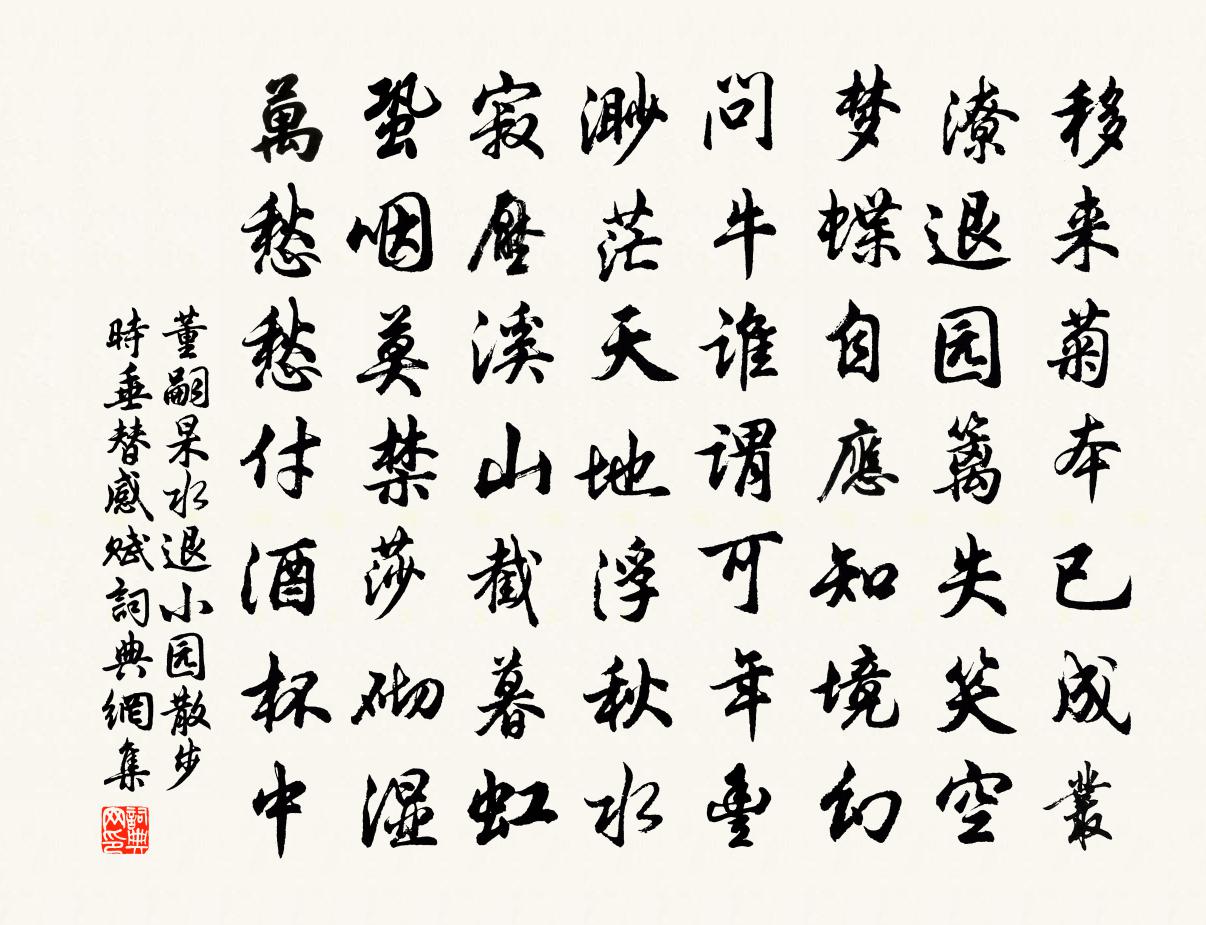 移来菊本已成叢
潦退园籬失笑空
梦蝶自應知境幻
問牛谁謂可年豊
渺茫天地浮秋水
寂歷溪山截暮虹
蛩咽莫禁莎砌湿
萬愁愁付酒杯中
董嗣杲水退小园散步
時垂替感赋詞典網集
詞典网印